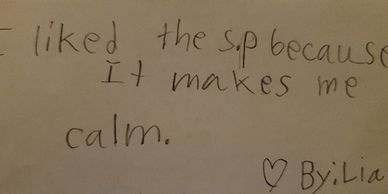 I liked the s.p because
It makes me
calm.
♡ By:Lia